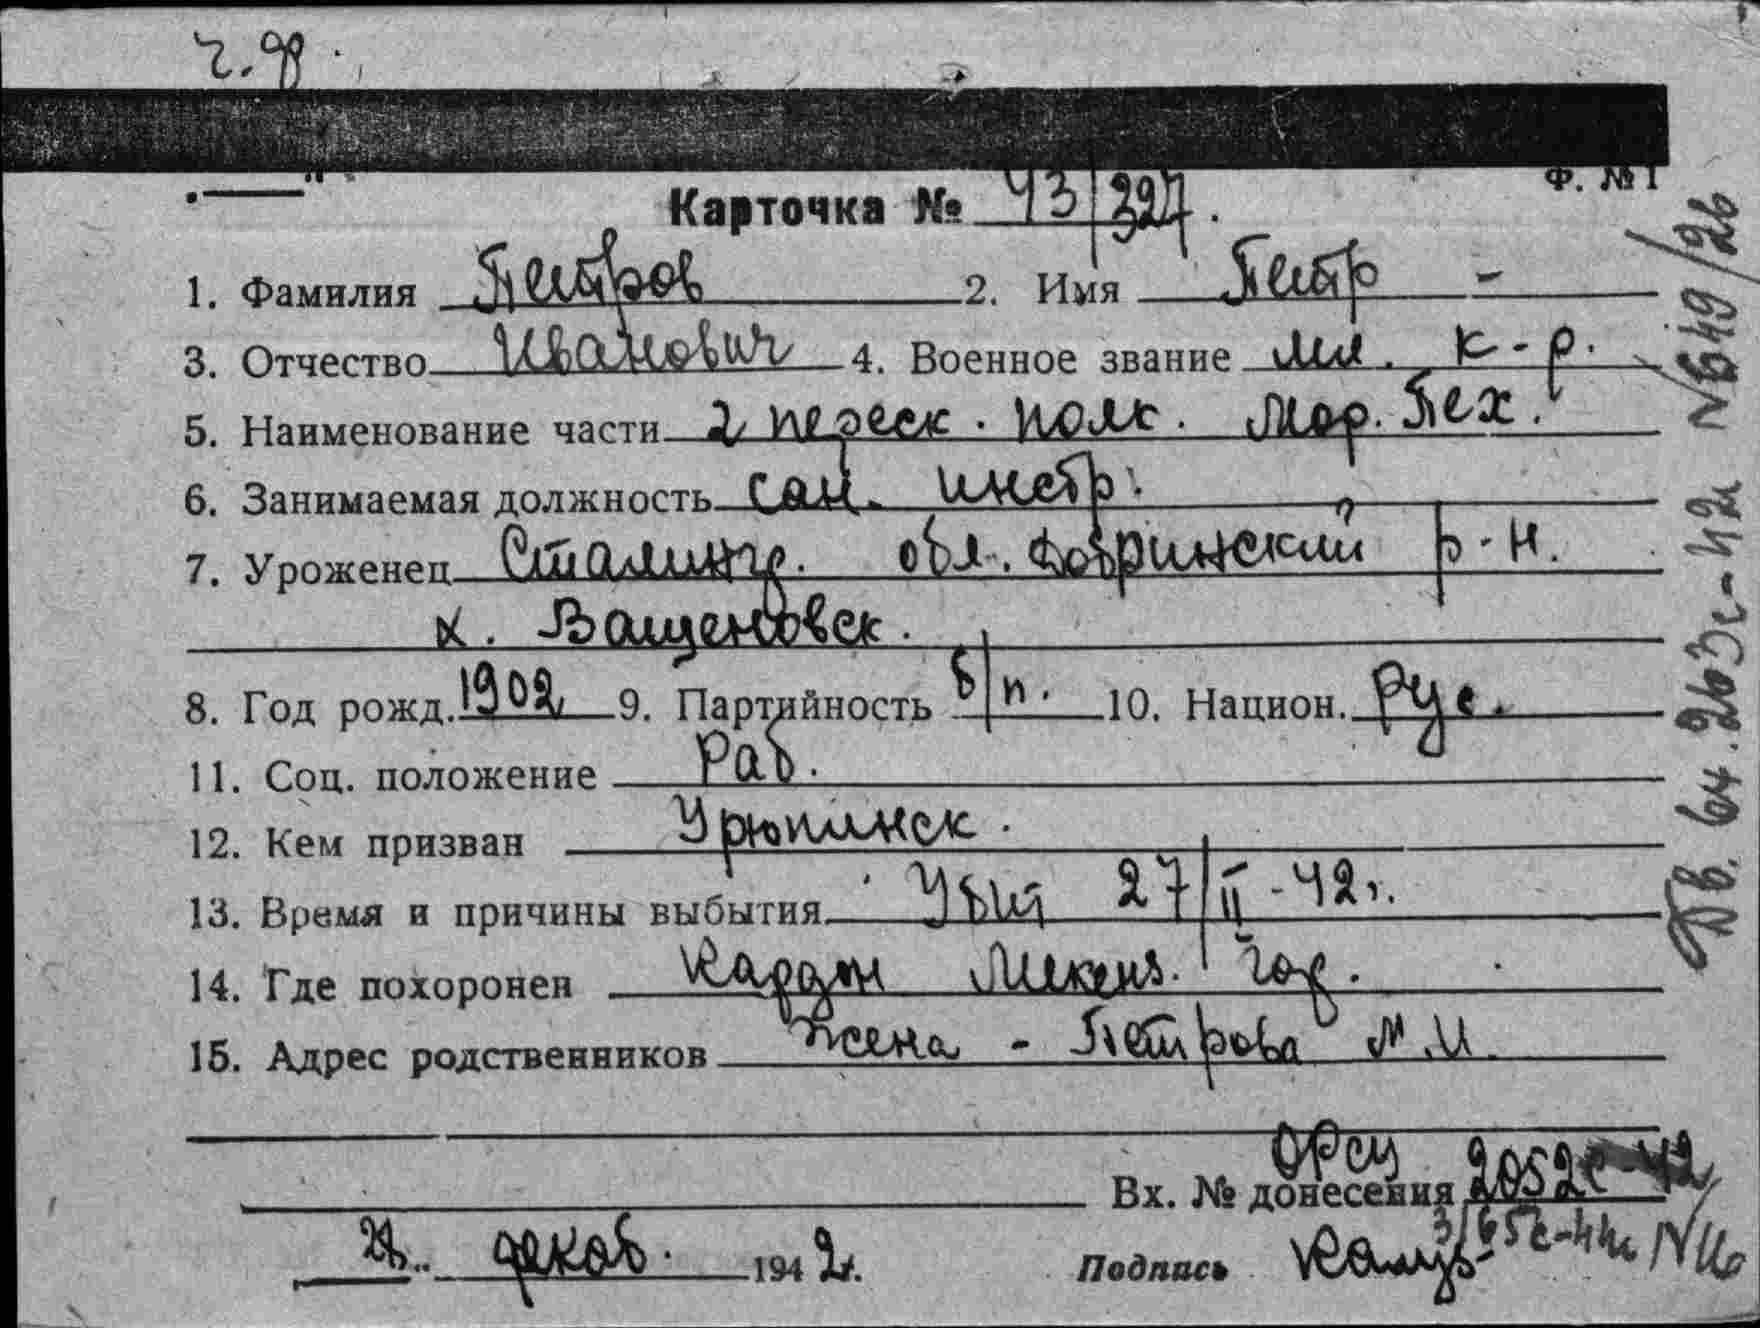 Ф. № 1
Карточка № 43/327.
1. Фамилия Петров 2. Имя Петр -
3. Отчество Иванович 4. Военное звание мл. к-р.
5. Наименование части 2 переск. полк. Мор. Пех.
6. Занимаемая должность сан. инстр.
7. Уроженец Сталингр. обл. Добринский р-н.
х. Ващеновск.
8. Год рожд. 1902 9. Партийность б/п. 10. Национ. Рус.
11. Соц. положение Раб.
12. Кем призван Урюпинск.
13. Время и причины выбытия Убит 27/II-42г.
14. Где похоронен Кардон Мекенз. гор.
15. Адрес родственников Жена - Петрова М.И.
ОРСУ
Вх. № донесения 2052с-42
декаб. 1942г. Подпись